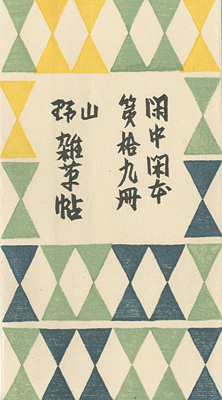 閑中閑本
第拾九冊
山珎
雑草帖